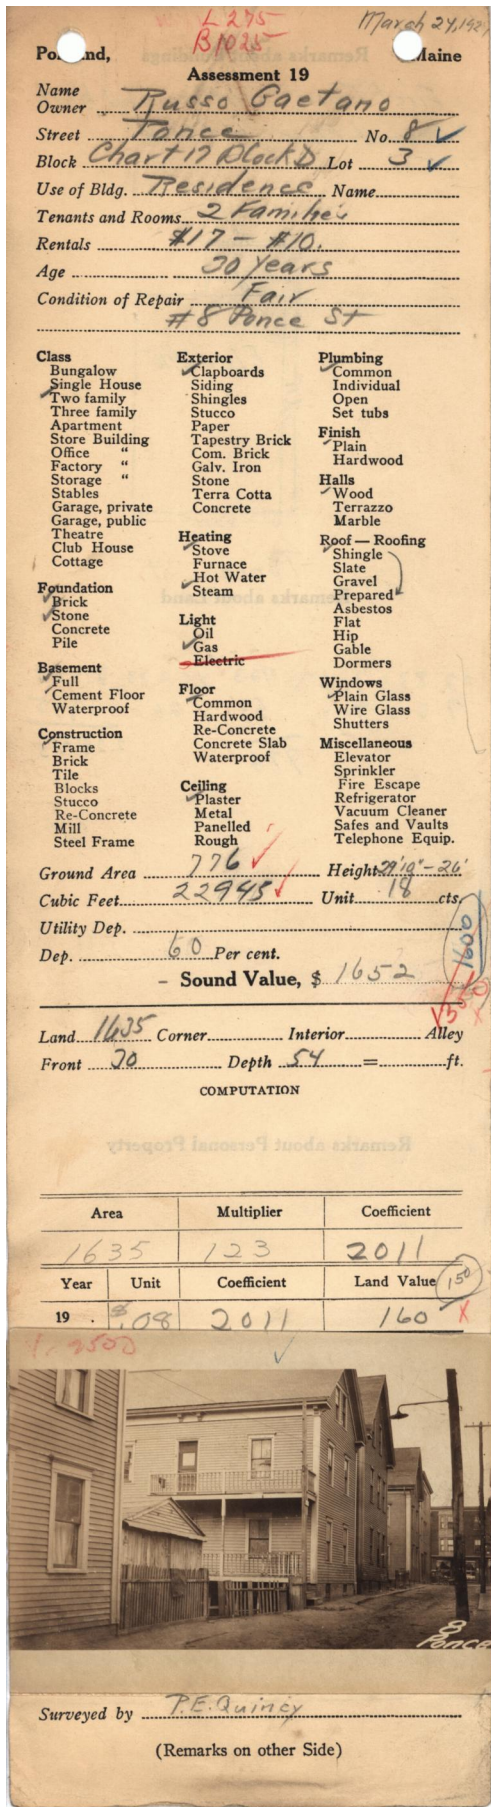 L 275
B1025
March 24, 192
Portland, Maine
Assessment 19
Name
Owner Russo Gaetano
Street Ponce No. 8 ✓
Block Chart 17 Block D Lot 3 ✓
Use of Bldg. Residence Name
Tenants and Rooms 2 Families
Rentals $17 - $10.
Age 30 years
Condition of Repair Fair
#8 Ponce St
Class
Bungalow
Single House
✓Two family
Three family
Apartment
Store Building
Office "
Factory "
Storage "
Stables
Garage, private
Garage, public
Theatre
Club House
Cottage
Foundation
✓Brick
✓Stone
Concrete
Pile
Basement
✓Full
✓Cement Floor
Waterproof
Construction
✓Frame
Brick
Tile
Blocks
Stucco
Re-Concrete
Mill
Steel Frame
Exterior
✓Clapboards
Siding
Shingles
Stucco
Paper
Tapestry Brick
Com. Brick
Galv. Iron
Stone
Terra Cotta
Concrete
Heating
✓Stove
Furnace
Hot Water
✓Steam
Light
Oil
✓Gas
Electric
Floor
✓Common
Hardwood
Re-Concrete
Concrete Slab
Waterproof
Ceiling
✓Plaster
Metal
Panelled
Rough
Plumbing
✓Common
Individual
Open
Set tubs
Finish
✓Plain
Hardwood
Halls
✓Wood
Terrazzo
Marble
Roof — Roofing
✓Shingle
Slate
Gravel
Prepared
Asbestos
Flat
Hip
Gable
Dormers
Windows
✓Plain Glass
Wire Glass
Shutters
Miscellaneous
Elevator
Sprinkler
Fire Escape
Refrigerator
Vacuum Cleaner
Safes and Vaults
Telephone Equip.
Ground Area 776 ✓ Height 29'10" - 26'
Cubic Feet 22945 ✓ Unit 18 cts.
Utility Dep.
Dep. 60 Per cent.
1600
- Sound Value, $ 1652
Land 1635 Corner Interior Alley
Front 30 Depth 54 = ft.
COMPUTATION
Area Multiplier Coefficient
1635 123 2011
Year Unit Coefficient Land Value 150
19 . $.08 2011 160 X
2500 ✓
8
Ponce
Surveyed by P.E. Quincy
(Remarks on other Side)